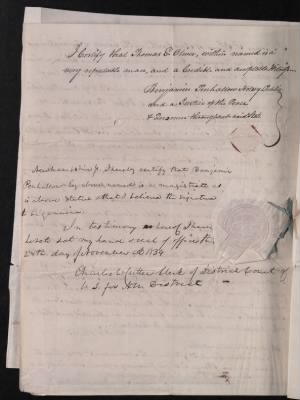 I Certify that Thomas E. Oliver, within named is a
very respectable man, and a Credible and acceptable Witness
Benjamin Penhallow Notary Public
and a Justice of the Peace
& Quorum throughout said State
New Hampshire ss. I hereby certify that Benjamin
Penhallow by above named is a magistrate as
is above stated & that I believe the signature
to be genuine.
In testimony whereof I have
hereto set my hand & seal of office this
28th day of November AD 1834
Charles W. Cutter Clerk of District Court of
U.S. for NH District